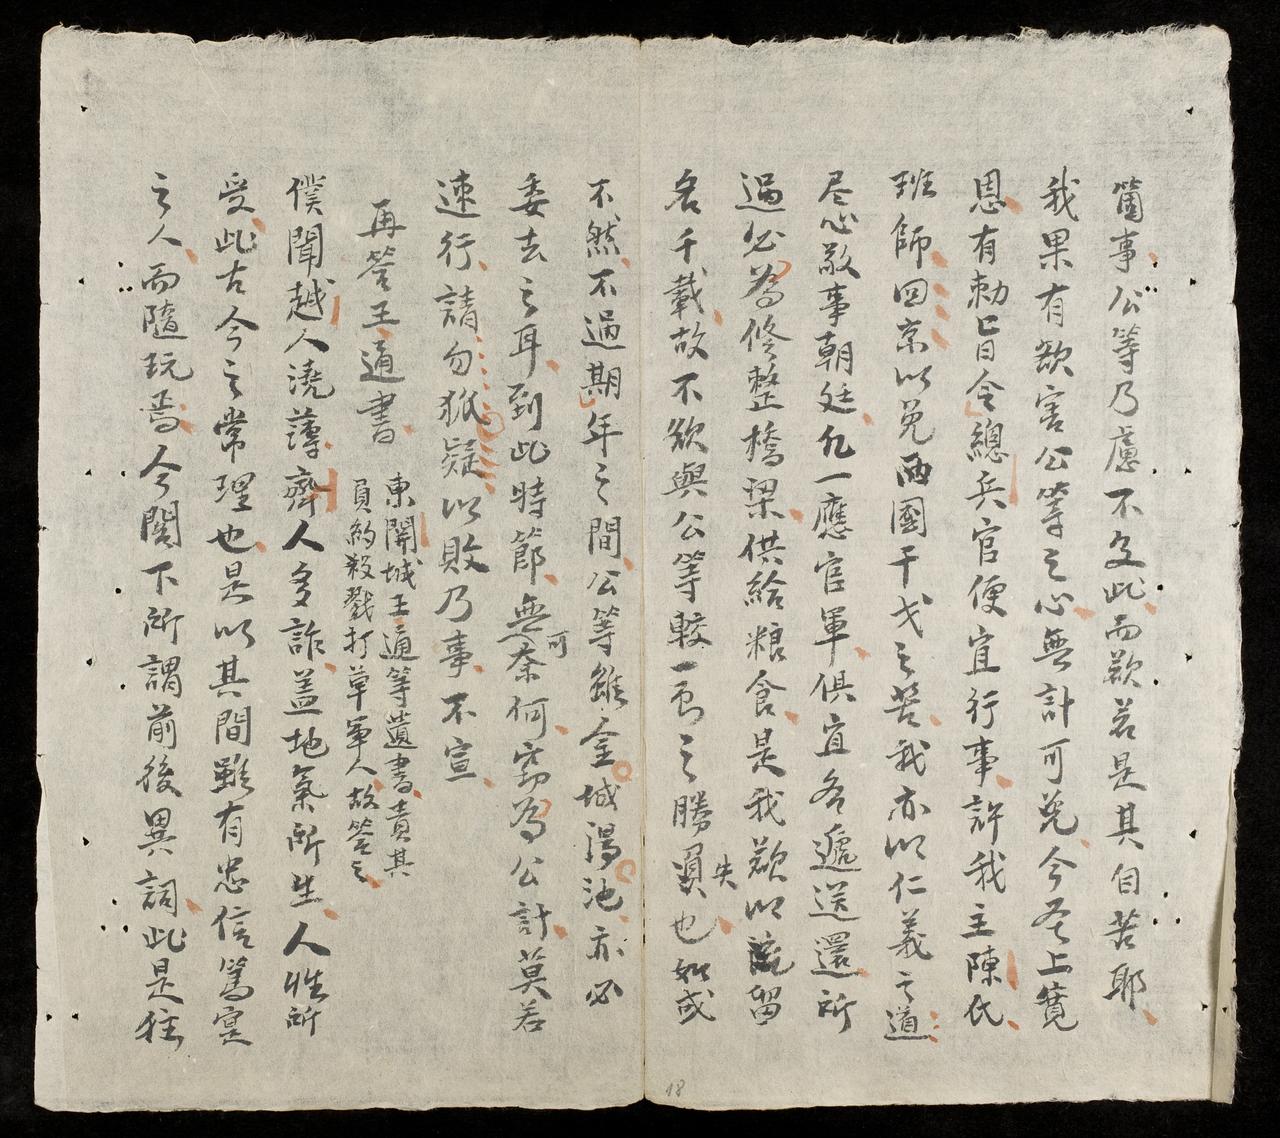 箇事公等乃慮不及此而欲若是其自苦耶
我果有欲害公等之心無計可免今圣上寬
恩有勅旨令總兵官便宜行事許我主陳氏
班師回京以免両國干戈之苦我亦以仁義之道
尽心敬事朝廷凢一應官軍俱宜各遞送還所
過必為修整橋梁供給粮食是我欲以流留
名千載故不欲與公等較一旦之勝負失也如或
不然不過期年之間公等雖金城湯池亦必
委去之耳到此時節無可奈何窃為公計莫若
速行請勿狐疑以敗乃事不宣
再答王通書
東關城王通等遺書責其
員約殺戮打草軍人故答之
僕聞越人澆薄齊人多詐盖地氣所生人性所
受此古今之常理也是以其間雖有忠信篤寔
之人而隨玩焉今閣下所謂前後異詞此是狂
18